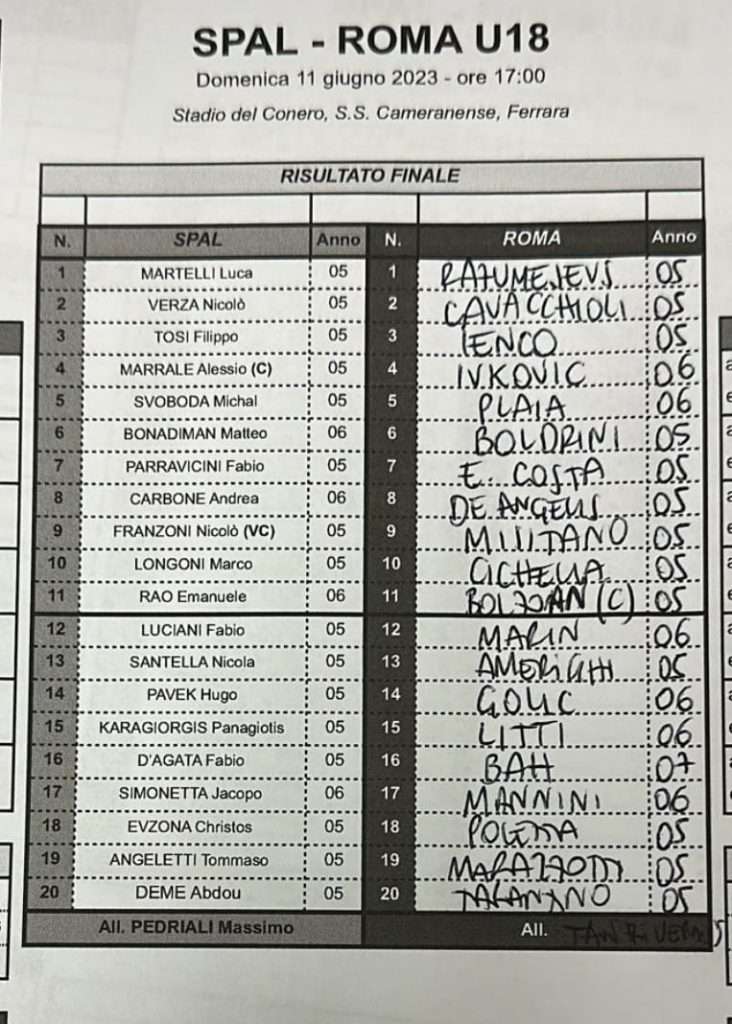 SPAL - ROMA U18
Domenica 11 giugno 2023 - ore 17:00
Stadio del Conero, S.S. Cameranense, Ferrara
RISULTATO FINALE
N. SPAL Anno N. ROMA Anno
1 MARTELLI Luca 05 1 RAZUMEJEVS 05
2 VERZA Nicolò 05 2 CAVACCHIOLI 05
3 TOSI Filippo 05 3 IENCO 05
4 MARRALE Alessio (C) 05 4 IVKOVIC 06
5 SVOBODA Michal 05 5 PLAIA 06
6 BONADIMAN Matteo 06 6 BOLDRINI 05
7 PARRAVICINI Fabio 05 7 E. COSTA 05
8 CARBONE Andrea 06 8 DE ANGELIS 05
9 FRANZONI Nicolò (VC) 05 9 MILITANO 05
10 LONGONI Marco 05 10 CICHELLA 05
11 RAO Emanuele 06 11 BOLZOAN (C) 05
12 LUCIANI Fabio 05 12 MARIN 06
13 SANTELLA Nicola 05 13 AMERIGHI 05
14 PAVEK Hugo 05 14 GOLIC 06
15 KARAGIORGIS Panagiotis 05 15 LITTI 06
16 D'AGATA Fabio 05 16 BAH 07
17 SIMONETTA Jacopo 06 17 MANNINI 06
18 EVZONA Christos 05 18 05
19 ANGELETTI Tommaso 05 19 MARAZZOTTI 05
20 DEME Abdou 05 20 05
All. PEDRIALI Massimo All.